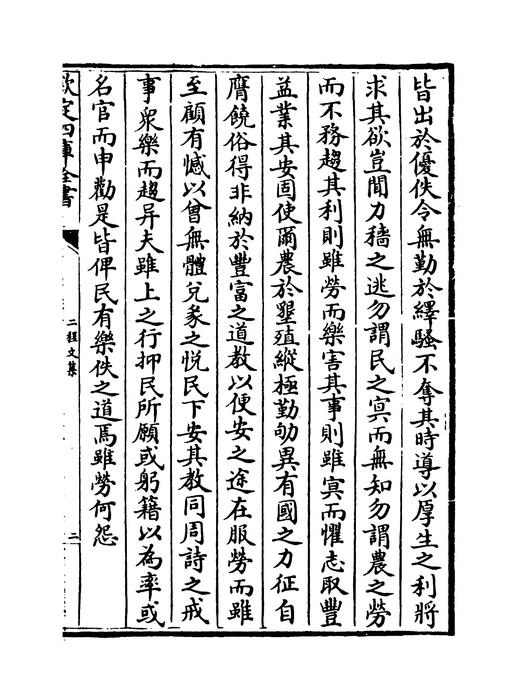 皆出於優佚令無勤於繹騷不奪其時導以厚生之利將
求其欲豈聞力穡之逃勿謂民之㝠而無知勿謂農之勞
而不務趨其利則雖勞而樂害其事則雖㝠而懼志取豐
益業其安固使爾農於墾殖縱極勤劬異有國之力征自
膺饒俗得非納於豐富之道教以便安之途在服勞而雖
至顧有憾以曾無體兌彖之悦民下安其教同周詩之戒
事衆樂而趨异夫雖上之行抑民所願或躬籍以為率或
名官而申勸是皆俾民有樂佚之道焉雖勞何怨
欽定四庫全書
二程文集
二